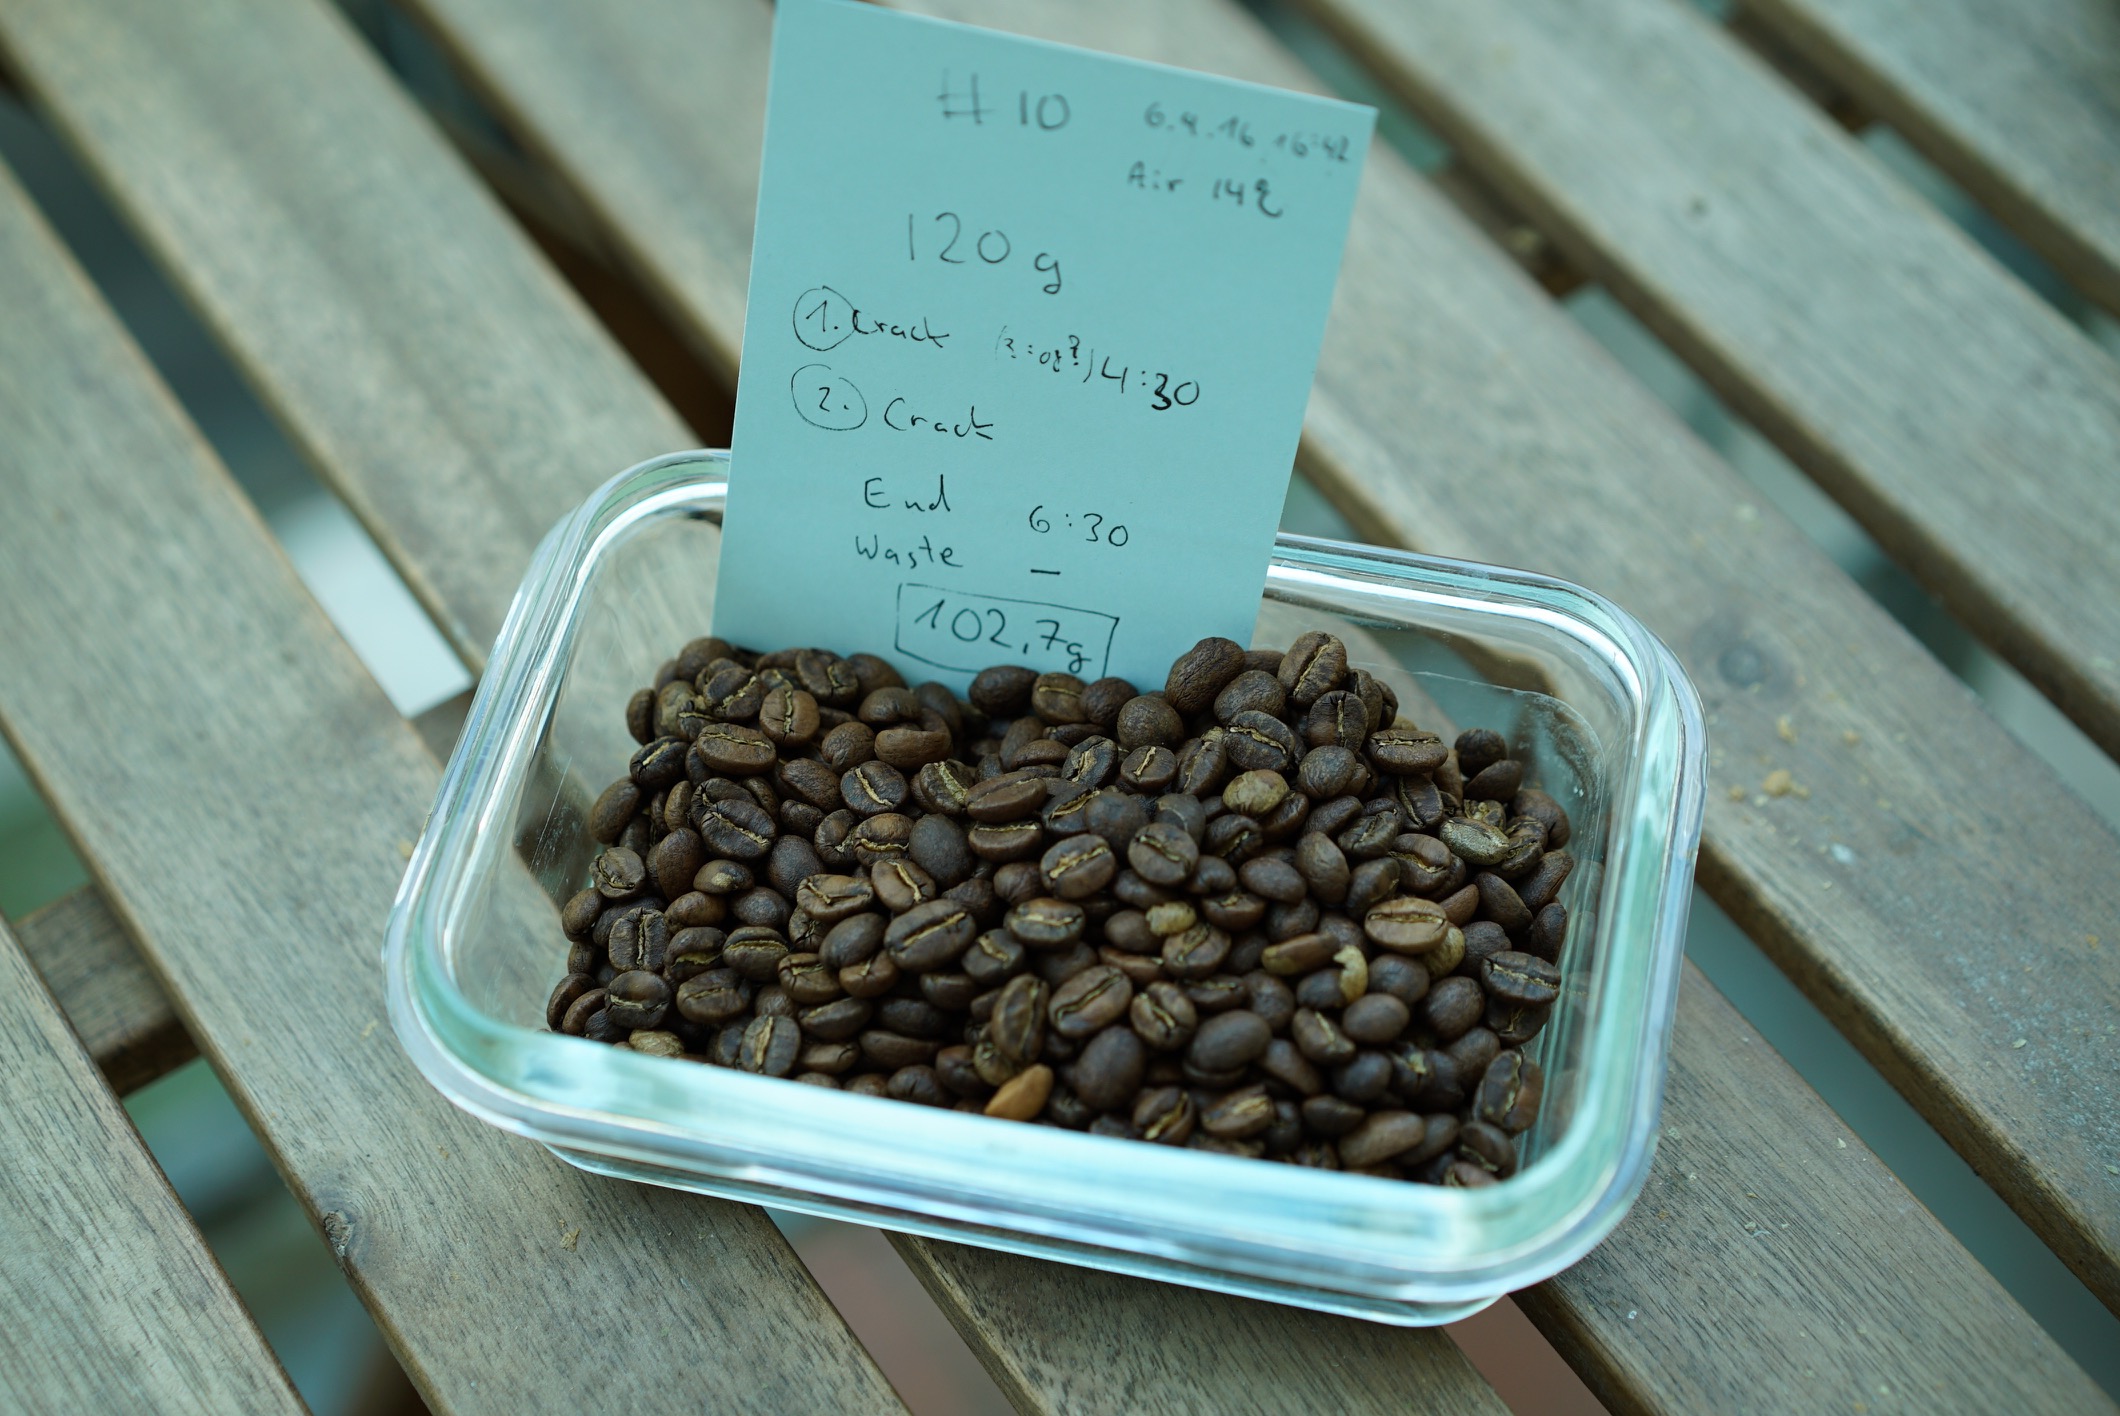 # 10 6.4.16 16:42
Air 14°C
120 g
1. Crack (3:08?) 4:30
2. Crack
End 6:30
Waste –
102,7g